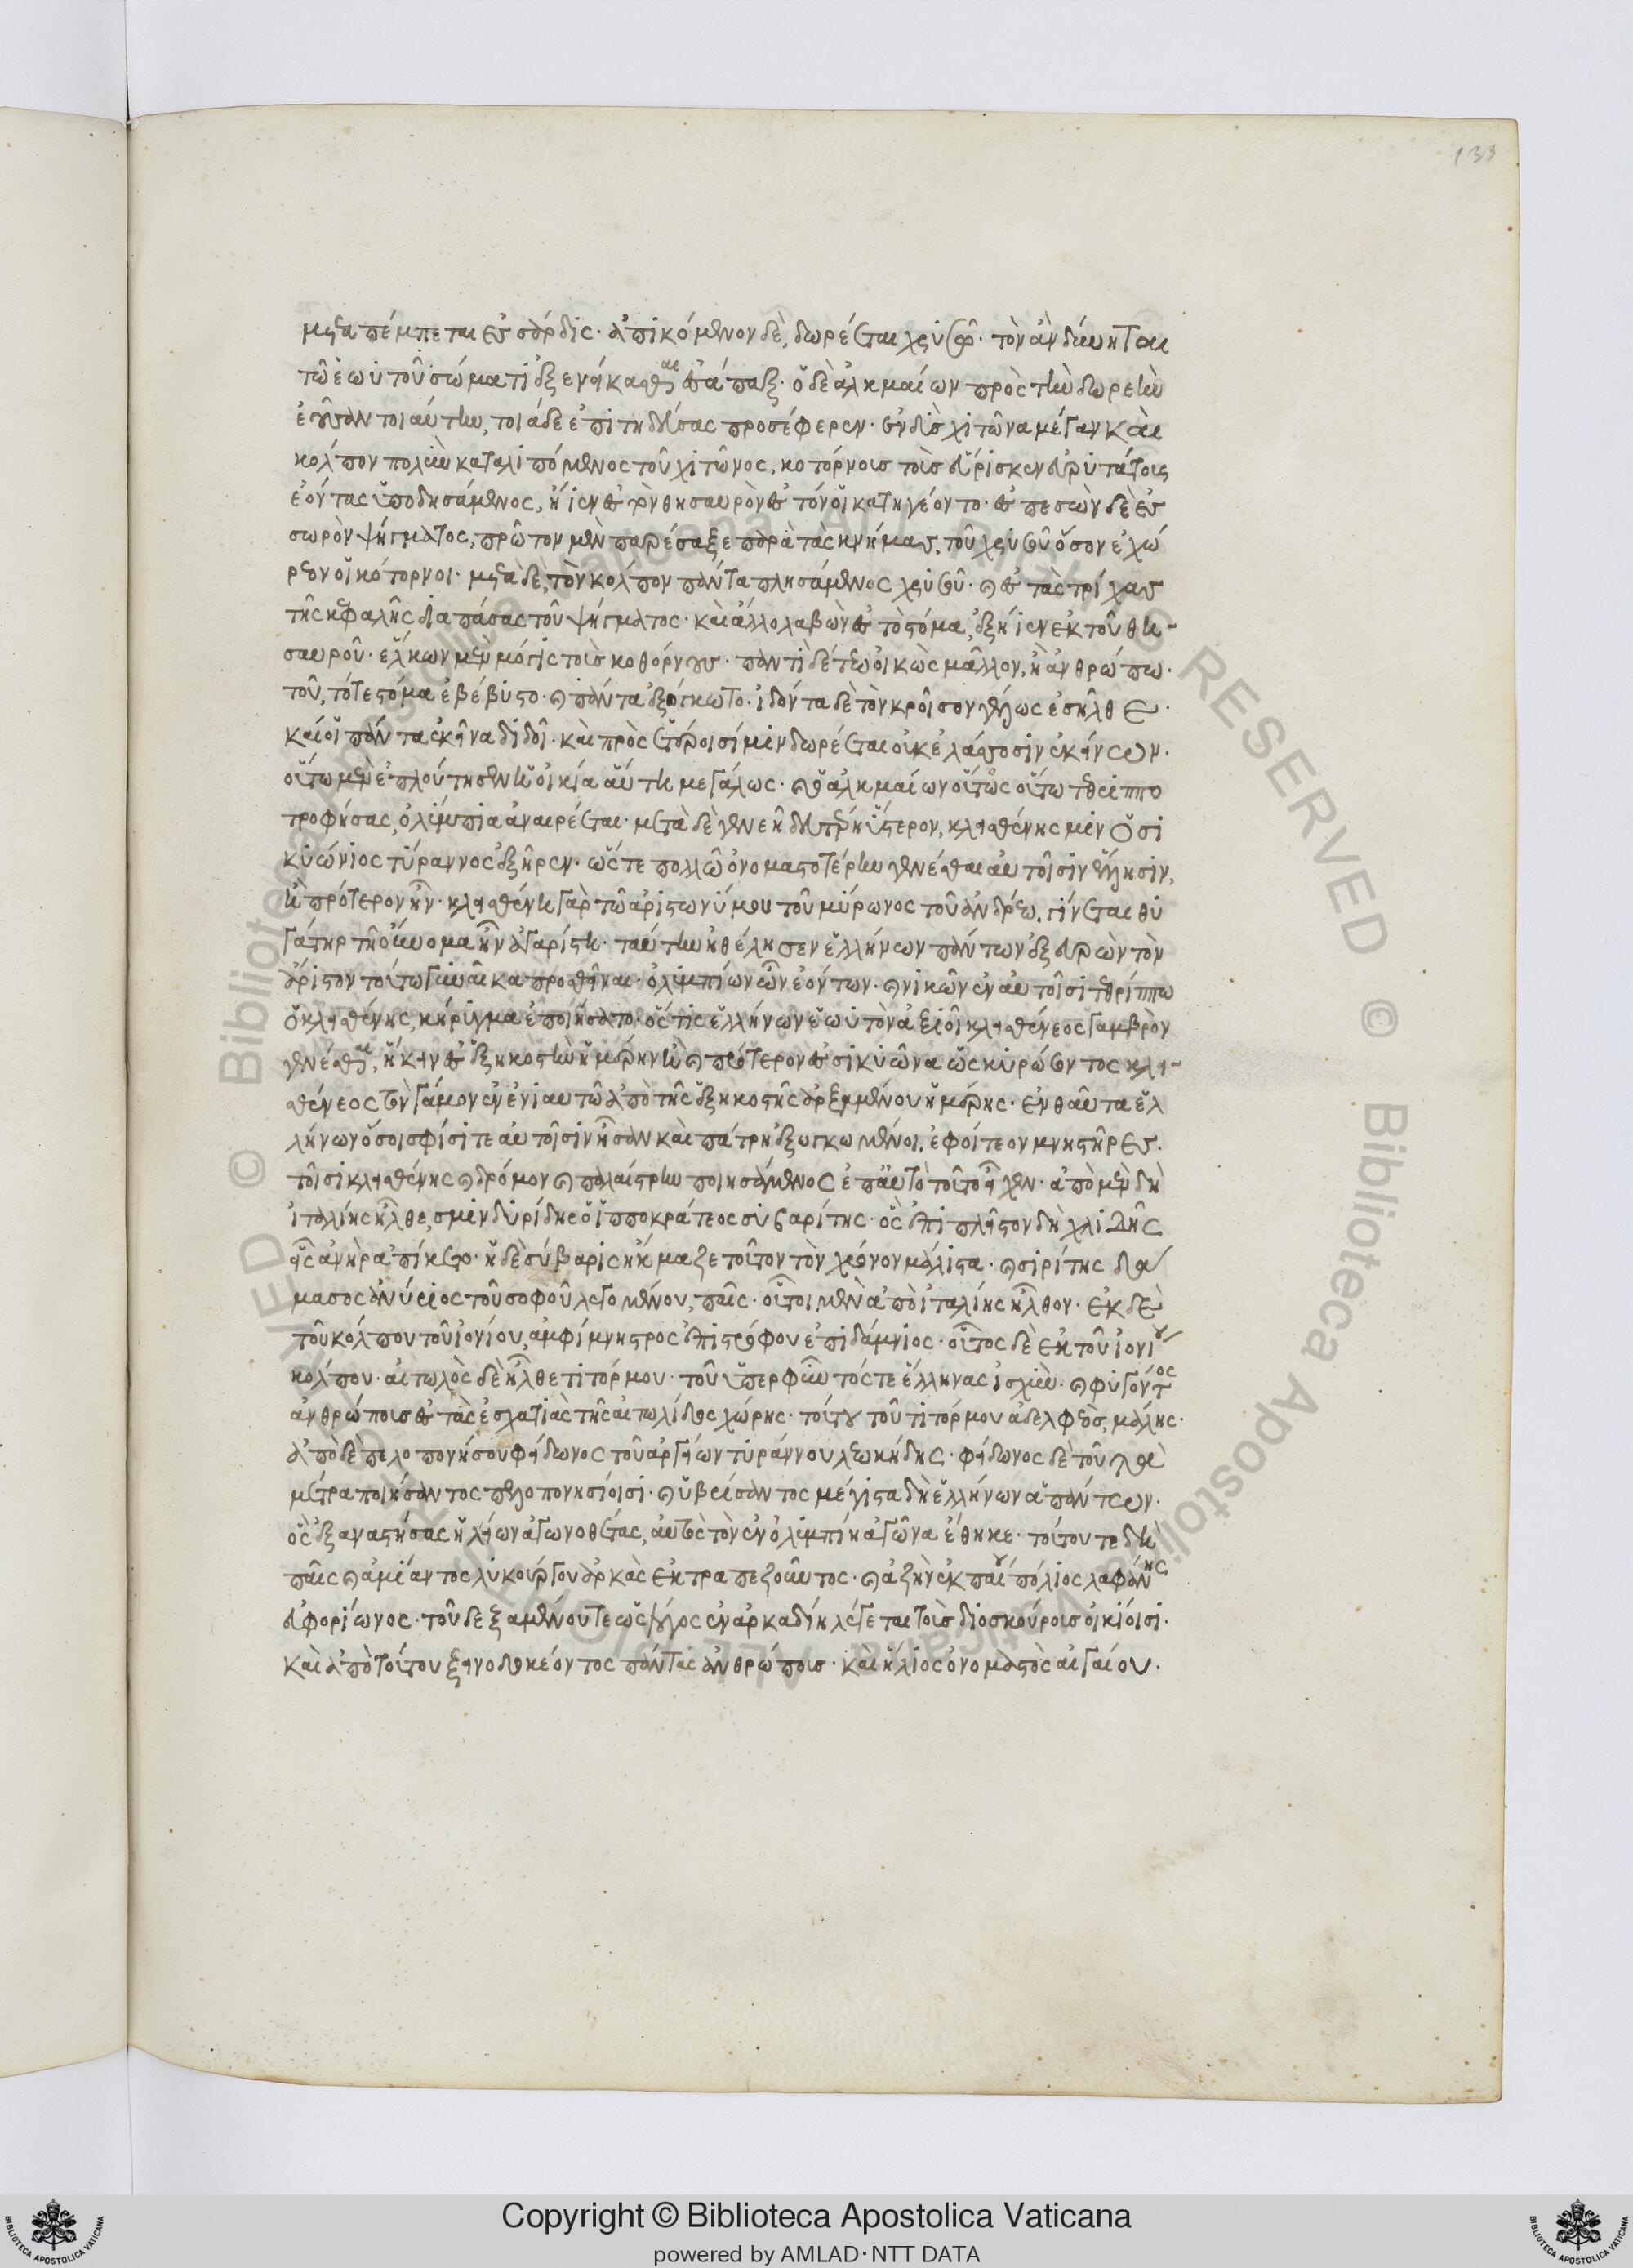 μεταπέμπεται ἐς σάρδις· ἀπικόμενον δὲ, δωρέεται χρυσῷ· τὸν ἂν δύνηται
τῷ ἑωυτοῦ σώματι ἐξενείκασθαι ἐσάπαξ· ὁ δὲ ἀλκμαίων πρὸς τὴν δωρεὴν
ἐοῦσαν τοιαύτην, τοιάδε ἐπιτηδεύσας προσέφερεν· ἐνδὺς χιτῶνα μέγαν καὶ
κόλπον πολὺν καταλιπόμενος τοῦ χιτῶνος, κοτόρνους τοὺς εὕρισκεν εὐρυτάτους
ἐόντας ὑποδησάμενος, ἤιεν ἐς τὸν θησαυρὸν ἐς τόν οἱ κατηγέοντο· ἐσπεσὼν δὲ ἐς
σωρὸν ψήγματος, πρῶτον μὲν παρέσαξε παρὰ τὰς κνήμας, τοῦ χρυσοῦ ὅσον ἐχώ
ρεον οἱ κότορνοι· μετὰ δὲ, τὸν κόλπον πάντα πλησάμενος χρυσοῦ· καὶ ἐς τὰς τρίχας
τῆς κεφαλῆς διαπάσας τοῦ ψήγματος· καὶ ἄλλο λαβὼν ἐς τὸ στόμα, ἐξήιεν ἐκ τοῦ θη-
σαυροῦ· ἕλκων μὲν μόγις τοὺς κοθόρνους· παντὶ δέ τεω οἰκὼς μᾶλλον, ἢ ἀνθρώπω·
τοῦ, τό τε στόμα ἐβέβυστο· καὶ πάντα ἐξόγκωτο· ἰδόντα δὲ τὸν κροῖσον γέλως ἐσῆλθε·
καί οἱ πάντα ἐκεῖνα διδοῖ· καὶ πρὸς ἑτέροισί μιν δωρέεται οὐκ ἐλάσσοσιν ἐκείνων·
οὕτω μὲν ἐπλούτησεν ἡ οἰκία αὕτη μεγάλως· καὶ ὁ ἀλκμαίων οὗτος οὕτω τεθριππο
τροφήσας, ὀλύμπια ἀναιρέεται· μετὰ δὲ γενεῆ δευτέρη ὕστερον, κλεισθένης μιν ὁ σι
κυώνιος τύραννος ἐξῆρεν· ὥστε πολλῶ ὀνομαστοτέρην γενέσθαι αὐτοῖσιν ἕλλησιν,
ἢ πρότερον ἦν· κλεισθένη γὰρ τῶ ἀριστωνύμου τοῦ μύρωνος τοῦ ἀνδρέω, γίνεται θυ
γάτηρ τῆ οὔνομα ἦν ἀγαρίστη· ταύτην ἠθέλησεν ἑλλήνων πάντων ἐξευρὼν τὸν
ἄριστον τούτω γυναῖκα προσθεῖναι· ὀλυμπίων ὦν ἐόντων· καὶ νικῶν ἐν αὐτοῖσι τεθρίππω
ὁ κλεισθένης, κήρυγμα ἐποιήσατο· ὅστις ἑλλήνων ἑωυτὸν ἀξιοῖ κλεισθένεος γαμβρὸν
γενέσθαι, ἥκειν ἐς ἑξηκοστὴν ἡμέρην ἢ καὶ πρότερον ἐς σικυῶνα ὡς κυρώσοντος κλει-
σθένεος τὸν γάμον ἐν ἐνιαυτῶ ἀπὸ τῆς ἑξηκοστῆς ἀρξαμένου ἡμέρης· ἐνθαῦτα ἑλ
λήνων ὅσοι σφίσι τε αὐτοῖσιν ἦσαν καὶ πάτρη ἐξωγκωμένοι, ἐφοίτεον μνηστῆρες·
τοῖσι κλεισθένης καὶ δρόμον καὶ παλαίστρην ποιησάμενος ἐπ' αὐτὸ τοῦτο εἶχεν· ἀπὸ μὲν δὴ
ἰταλίης ἦλθε, σμινδυρίδης ὁ ἱπποκράτεος συβαρίτης· ὃς ἐπὶ πλεῖστον δὴ χλιδῆς
εἷς ἀνὴρ ἀπίκετο· ἡ δὲ σύβαρις ἤκμαζε τοῦτον τὸν χρόνον μάλιστα· καὶ σιρίτης δα
μασος ἀμύριος τοῦ σοφοῦ λεγομένου, παῖς· οὗτοι μὲν ἀπὸ ἰταλίης ἦλθον· ἐκ δὲ
τοῦ κόλπου τοῦ ἰονίου, ἀμφίμνηστρος ἐπιστρόφου ἐπιδάμνιος· οὗτος δὲ ἐκ τοῦ ἰονίου
κόλπου· αἰτωλὸς δὲ ἦλθε τιτόρμου· τοῦ ὑπερφύντός τε ἕλληνας ἰσχύν· καὶ φυγόντος
ἀνθρώπους ἐς τὰς ἐσχατιὰς τῆς αἰτωλίδος χώρης· τούτου τοῦ τιτόρμου ἀδελφεὸς, μάλης·
ἀπὸ δὲ πελοποννήσου φείδωνος τοῦ ἀργείων τυράννου λεωκήδης· φείδωνος δὲ τοῦ τὰ
μέτρα ποιήσαντος πελοποννησίοισι· καὶ ὑβρίσαντος μέγιστα δὴ ἑλλήνων ἁπάντων·
ὃς ἐξαναστήσας ἠλείων ἀγωνοθέτας, αὐτὸς τὸν ἐν ὀλυμπίη ἀγῶνα ἔθηκε· τούτου τε δὴ
παῖς καὶ ἀμίαντος λυκούργου ἀρκὰς ἐκ τραπεζοῦντος· καὶ ἀζὴν ἐκ παίου πόλιος λαφάνης
εὐφορίωνος· τοῦ δεξαμένου τε ὡς λόγος ἐν ἀρκαδίη λέγεται τοὺς διοσκούρους οἰκίοισι·
καὶ ἀπὸ τούτου ξεινοδοκέοντος πάντας ἀνθρώπους· καὶ ἠλίος ὀνομαστὸς αἰγαίου·
133
© Biblioteca Apostolica Vaticana ALL RIGHTS RESERVED
Copyright © Biblioteca Apostolica Vaticana
powered by AMLAD·NTT DATA
BIBLIOTECA APOSTOLICA VATICANA
BIBLIOTECA APOSTOLICA VATICANA